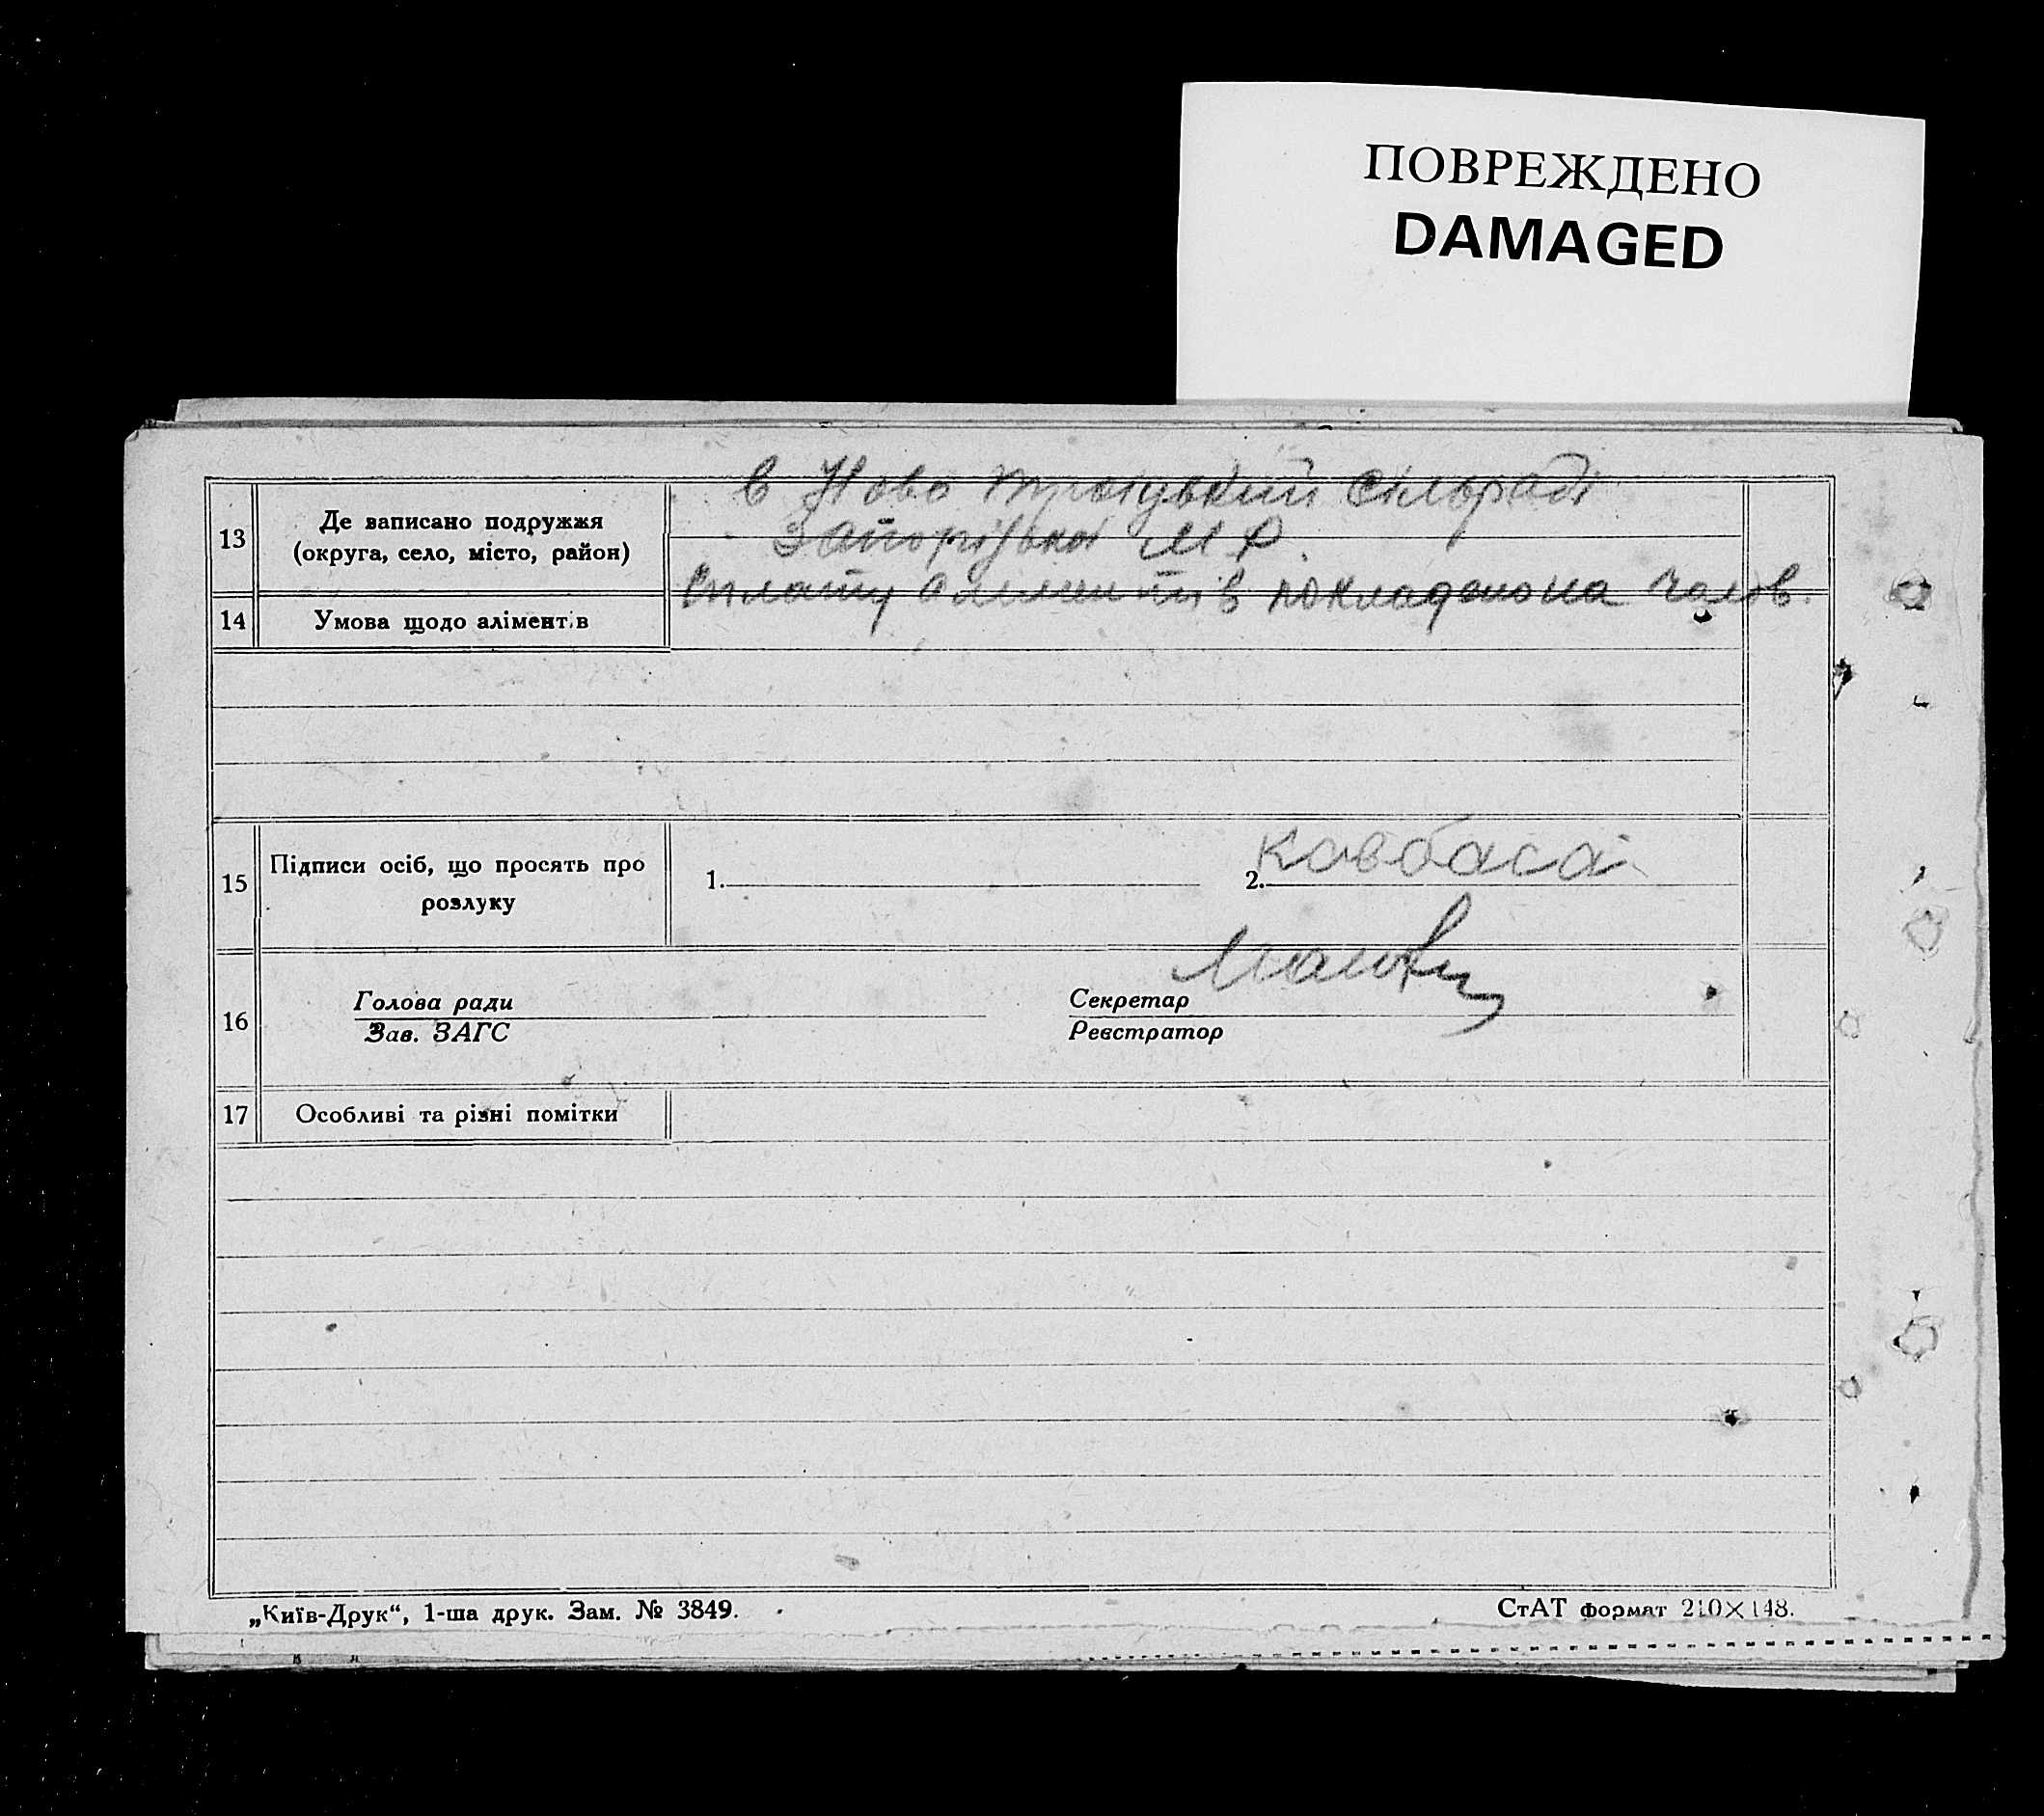 ПОВРЕЖДЕНО
DAMAGED
13 Де записано подружжя (округа, село, місто, район)
в Ново Троїцький Сільраді
Запорізької М Р.
14 Умова щодо алімент.в
Сплату алиментів покладено на чолов.
15 Підписи осіб, що просять про розлуку
1. 2. Ковбаса
16 Голова ради Секретар
Зав. ЗАГС Реєстратор
17 Особливі та різні помітки
„Київ-Друк“, 1-ша друк. Зам. № 3849. СтАТ формат 210×148.